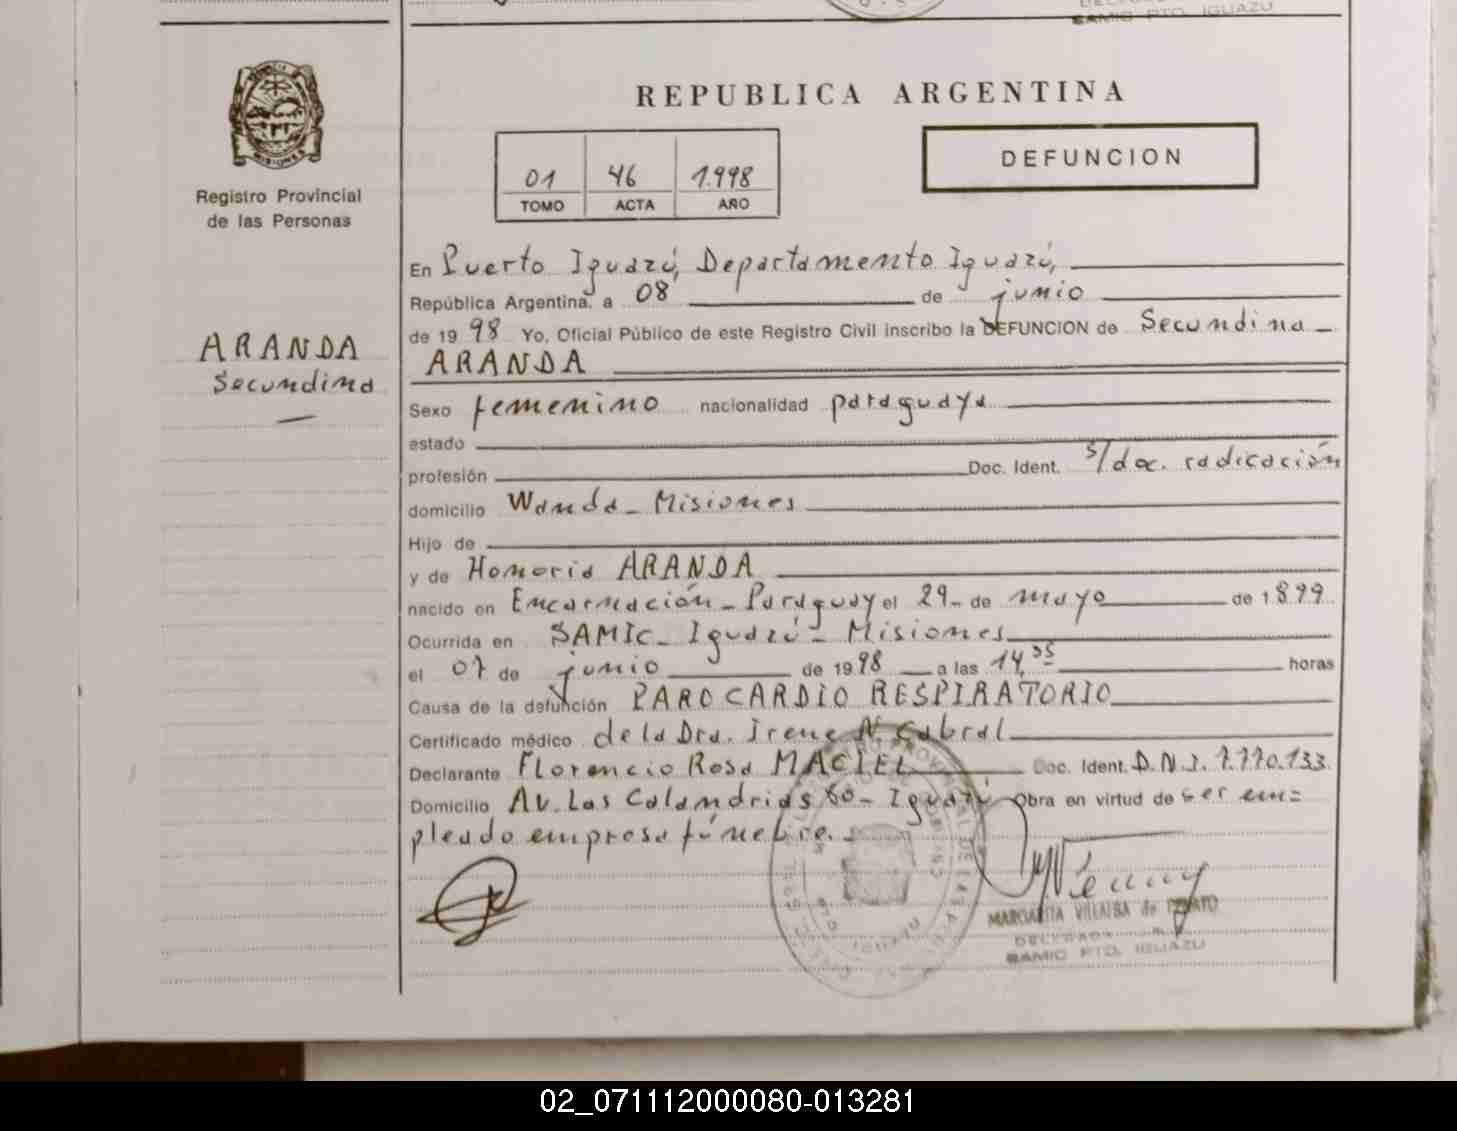 SAMIC PTO. IGUAZU
REPUBLICA ARGENTINA
DEFUNCION
01 46 1.998
TOMO ACTA AÑO
MISIONES
Registro Provincial
de las Personas
En Puerto Iguazú, Departamento Iguazú,
República Argentina, a 08 de junio
de 19 98 Yo, Oficial Público de este Registro Civil inscribo la DEFUNCION de Secundina
ARANDA
ARANDA
Secundina
Sexo femenino nacionalidad paraguaya
estado
profesión Doc. Ident. s/doc. radicación
domicilio Wanda - Misiones
Hijo de
y de Honoria ARANDA
nacido en Encarnación - Paraguay el 29 - de mayo de 1 899
Ocurrida en SAMIC - Iguazú - Misiones
el 07 de junio de 19 98 a las 14,35 horas
Causa de la defunción PARO CARDIO RESPIRATORIO
Certificado médico de la Dra. Irene N. Cabral
Declarante Florencio Rosa MACIEL Doc. Ident. D.N.I. 7.770.133
Domicilio Av. Las Calandrias 60 - Iguazú Obra en virtud de ser em=
pleado empresa fúnebre.
MARGARITA VILLALBA de
DELEGADA
SAMIC PTO. IGUAZU
02_071112000080-013281